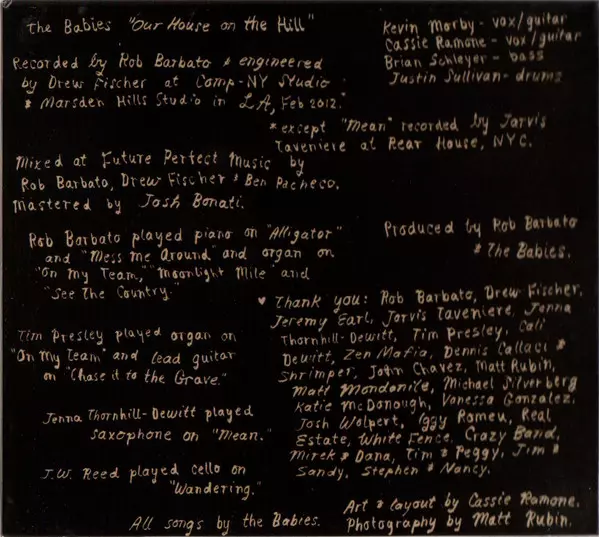 The Babies "Our House on the Hill"
Recorded by Rob Barbato & engineered
by Drew Fischer at Comp-NY Studio
& Marsden Hills Studio in LA, Feb 2012.*
Kevin Morby - vox/guitar
Cassie Ramone - vox/guitar
Brian Schleyer - bass
Justin Sullivan - drums
*except "Mean" recorded by Jarvis
Taveniere at Rear House, NYC.
Mixed at Future Perfect Music by
Rob Barbato, Drew Fischer & Ben Pacheco.
Mastered by Josh Bonati.
Rob Barbato played piano on "Alligator"
and "Mess Me Around" and organ on
"On My Team," "Moonlight Mile" and
"See The Country."
Produced by Rob Barbato
& The Babies.
Tim Presley played organ on
"On My Team" and lead guitar
on "Chase it to the Grave."
Jenna Thornhill-Dewitt played
saxophone on "Mean."
J.W. Reed played cello on
"Wandering."
All songs by the Babies.
♥ Thank you: Rob Barbato, Drew Fischer,
Jeremy Earl, Jarvis Taveniere, Jenna
Thornhill-Dewitt, Tim Presley, Cali
Dewitt, Zen Mafia, Dennis Callaci &
Shrimper, John Chavez, Matt Rubin,
Matt Mondanile, Michael Silverberg
Katie McDonough, Vanessa Gonzalez,
Josh Wolpert, Iggy Romeu, Real
Estate, White Fence, Crazy Band,
Mirek & Dana, Tim & Peggy, Jim &
Sandy, Stephen & Nancy.
Art & layout by Cassie Ramone.
Photography by Matt Rubin.